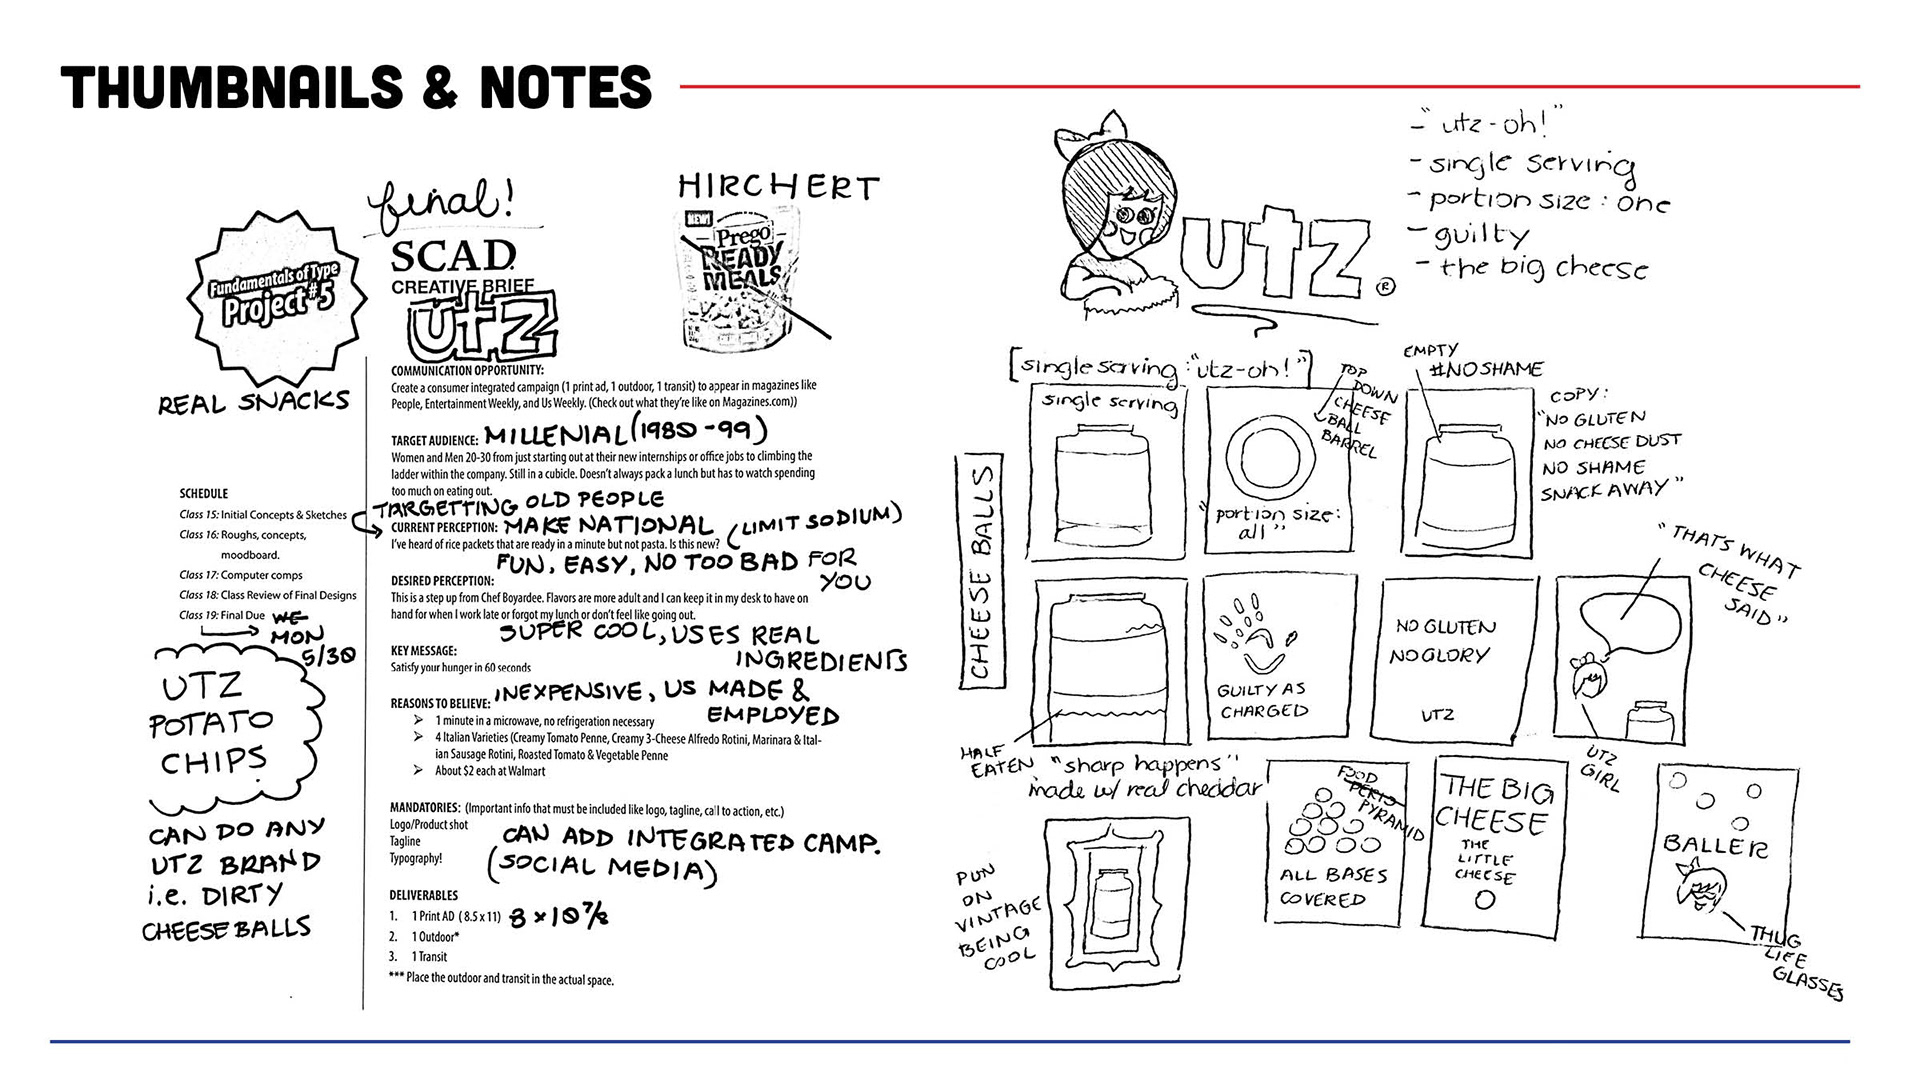 THUMBNAILS & NOTES
final!
HIRCHERT
SCAD.
CREATIVE BRIEF
UTZ
NEW!
Prego
READY
MEALS
Fundamentals of Type
Project #5
REAL SNACKS
SCHEDULE
Class 15: Initial Concepts & Sketches
Class 16: Roughs, concepts,
moodboard.
Class 17: Computer comps
Class 18: Class Review of Final Designs
Class 19: Final Due WE
MON
5/30
UTZ
POTATO
CHIPS
CAN DO ANY
UTZ BRAND
i.e. DIRTY
CHEESE BALLS
COMMUNICATION OPPORTUNITY:
Create a consumer integrated campaign (1 print ad, 1 outdoor, 1 transit) to appear in magazines like
People, Entertainment Weekly, and Us Weekly. (Check out what they're like on Magazines.com))
TARGET AUDIENCE: MILLENIAL (1980-99)
Women and Men 20-30 from just starting out at their new internships or office jobs to climbing the
ladder within the company. Still in a cubicle. Doesn't always pack a lunch but has to watch spending
too much on eating out.
TARGETTING OLD PEOPLE
CURRENT PERCEPTION: MAKE NATIONAL (LIMIT SODIUM)
I've heard of rice packets that are ready in a minute but not pasta. Is this new?
FUN, EASY, NO TOO BAD FOR
YOU
DESIRED PERCEPTION:
This is a step up from Chef Boyardee. Flavors are more adult and I can keep it in my desk to have on
hand for when I work late or forgot my lunch or don't feel like going out.
SUPER COOL, USES REAL
INGREDIENTS
KEY MESSAGE:
Satisfy your hunger in 60 seconds
REASONS TO BELIEVE: INEXPENSIVE, US MADE &
EMPLOYED
➢ 1 minute in a microwave, no refrigeration necessary
➢ 4 Italian Varieties (Creamy Tomato Penne, Creamy 3-Cheese Alfredo Rotini, Marinara & Ital-
ian Sausage Rotini, Roasted Tomato & Vegetable Penne
➢ About $2 each at Walmart
MANDATORIES: (Important info that must be included like logo, tagline, call to action, etc.)
Logo/Product shot
Tagline
Typography!
CAN ADD INTEGRATED CAMP.
(SOCIAL MEDIA)
DELIVERABLES
1. 1 Print AD (8.5 x 11) 8 x 10 7/8
2. 1 Outdoor*
3. 1 Transit
*** Place the outdoor and transit in the actual space.
UTZ ®
- "utz-oh!"
- single serving
- portion size: one
- guilty
- the big cheese
[single serving: "utz-oh!"]
CHEESE BALLS
single serving
TOP
DOWN
CHEESE
BALL
BARREL
"portion size:
all"
EMPTY
#NOSHAME
COPY:
"NO GLUTEN
NO CHEESE DUST
NO SHAME
SNACK AWAY"
HALF
EATEN
"sharp happens"
made w/ real cheddar
GUILTY AS
CHARGED
NO GLUTEN
NO GLORY
UTZ
"THATS WHAT
CHEESE
SAID"
UTZ
GIRL
PUN
ON
VINTAGE
BEING
COOL
FOOD
PYRAMID
ALL BASES
COVERED
THE BIG
CHEESE
THE
LITTLE
CHEESE
BALLER
THUG
LIFE
GLASSES